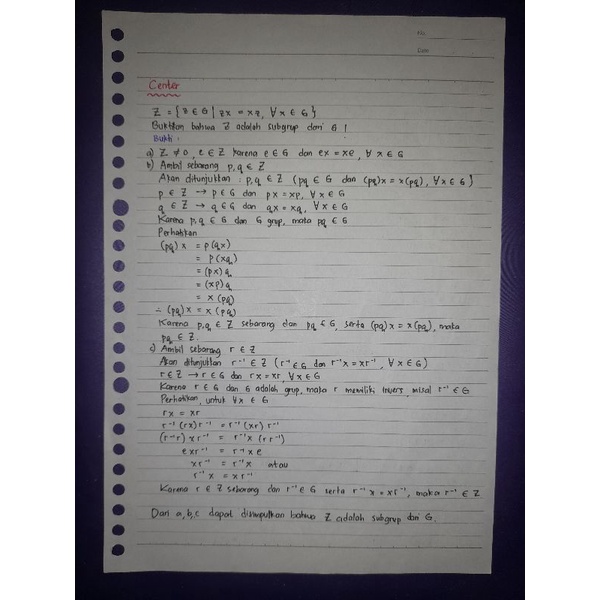 No.
Date
Center
Z = {z ∈ G | zx = xz, ∀ x ∈ G}
Buktikan bahwa Z adalah subgrup dari G !
Bukti :
a) Z ≠ 0, e ∈ Z karena e ∈ G dan ex = xe, ∀ x ∈ G
b) Ambil sebarang p, q ∈ Z
Akan ditunjukkan : p, q ∈ Z (pq ∈ G dan (pq)x = x(pq), ∀ x ∈ G)
p ∈ Z → p ∈ G dan px = xp, ∀ x ∈ G
q ∈ Z → q ∈ G dan qx = xq, ∀ x ∈ G
Karena p, q ∈ G dan G grup, maka pq ∈ G
Perhatikan
(pq) x = p (qx)
= p (xq)
= (px) q
= (xp) q
= x (pq)
∴ (pq) x = x (pq)
Karena p, q ∈ Z sebarang dan pq ∈ G, serta (pq)x = x(pq), maka
pq ∈ Z.
c) Ambil sebarang r ∈ Z
Akan ditunjukkan r⁻¹ ∈ Z (r⁻¹ ∈ G dan r⁻¹x = xr⁻¹, ∀ x ∈ G)
r ∈ Z → r ∈ G dan rx = xr, ∀ x ∈ G
Karena r ∈ G dan G adalah grup, maka r memiliki invers, misal r⁻¹ ∈ G
Perhatikan, untuk ∀ x ∈ G
rx = xr
r⁻¹ (rx) r⁻¹ = r⁻¹ (xr) r⁻¹
(r⁻¹r) xr⁻¹ = r⁻¹x (rr⁻¹)
exr⁻¹ = r⁻¹xe
xr⁻¹ = r⁻¹x atau
r⁻¹x = xr⁻¹
Karena r ∈ Z sebarang dan r⁻¹ ∈ G serta r⁻¹x = xr⁻¹, maka r⁻¹ ∈ Z
Dari a, b, c dapat disimpulkan bahwa Z adalah subgrup dari G.